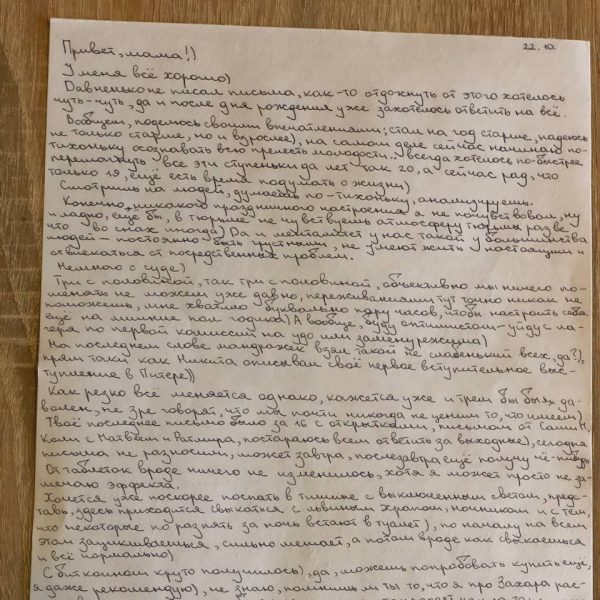 22.10.
Привет, мама!)
У меня всё хорошо)
Давненько не писал письма, как-то отдохнуть от этого хотелось
чуть-чуть, да и после дня рождения уже захотелось ответить на всё.
Вообщем, поделюсь своими впечатлениями; стал на год старше, надеюсь
не только старше, но и взрослее), на самом деле сейчас начинаю по-
тихоньку осознавать всю прелесть молодости. Всегда хотелось по-быстрее
перешагнуть все эти ступеньки до лет так 20, а сейчас рад, что
только 19, ещё есть время подумать о жизни)
Смотришь на людей, думаешь по-тихоньку, анализируешь.
Конечно, никакого праздничного настроения я не почувствовал, ну
и ладно, ещё бы, в тюрьме не чувствуешь атмосферу тюрьмы разве
что во снах иногда) Да и менталитет у нас такой у большинства
людей — постоянно быть грустными, не умеют жить настоящим и
отвлекаться от посредственных проблем.
Немного о суде)
Три с половиной, так три с половиной, объективно мы ничего по-
менять не можем уже давно, переживаниями тут точно никак не
поможешь, мне хватило буквально пару часов, чтобы настроить себя
ещё на лишние пол годика) А вообще, буду оптимистом — уйду с ла-
геря по первой комиссии на удо или замену режима)
На последнем слове мандражек взял такой не слабенький всех, да?),
прям таки как Никита описывал своё первое вступительное выс-
тупление в Питере))
Как резко всё меняется однако, кажется уже и трём бы был я до-
волен, не зря говорят, что мы почти никогда не ценим то, что имеем)
Твоё последнее письмо было за 16 с открытками, письмом от Саши М,
Коли с Матвеем и Ратмира, постараюсь всем ответить за выходные), сегодня
письма не разносили, может завтра, послезавтра ещё получу чё-нибудь
От таблеток вроде ничего не изменилось, хотя я может просто не за-
мечаю эффекта.
Хочется уже поскорее поспать в тишине с выключенным светом, предс-
тавь, здесь приходится свыкаться с львиным храпом, ночником и с тем,
что некоторые по раз пять за ночь встают в туалет), по началу на всем
этом зацикливаешься, сильно мешает, а потом вроде как свыкаешься
и всё нормально)
С биткоином круто получилось), да, можешь попробовать купить ещё,
я даже рекомендую), не знаю, помнишь ли ты то, что я про Захара рас-